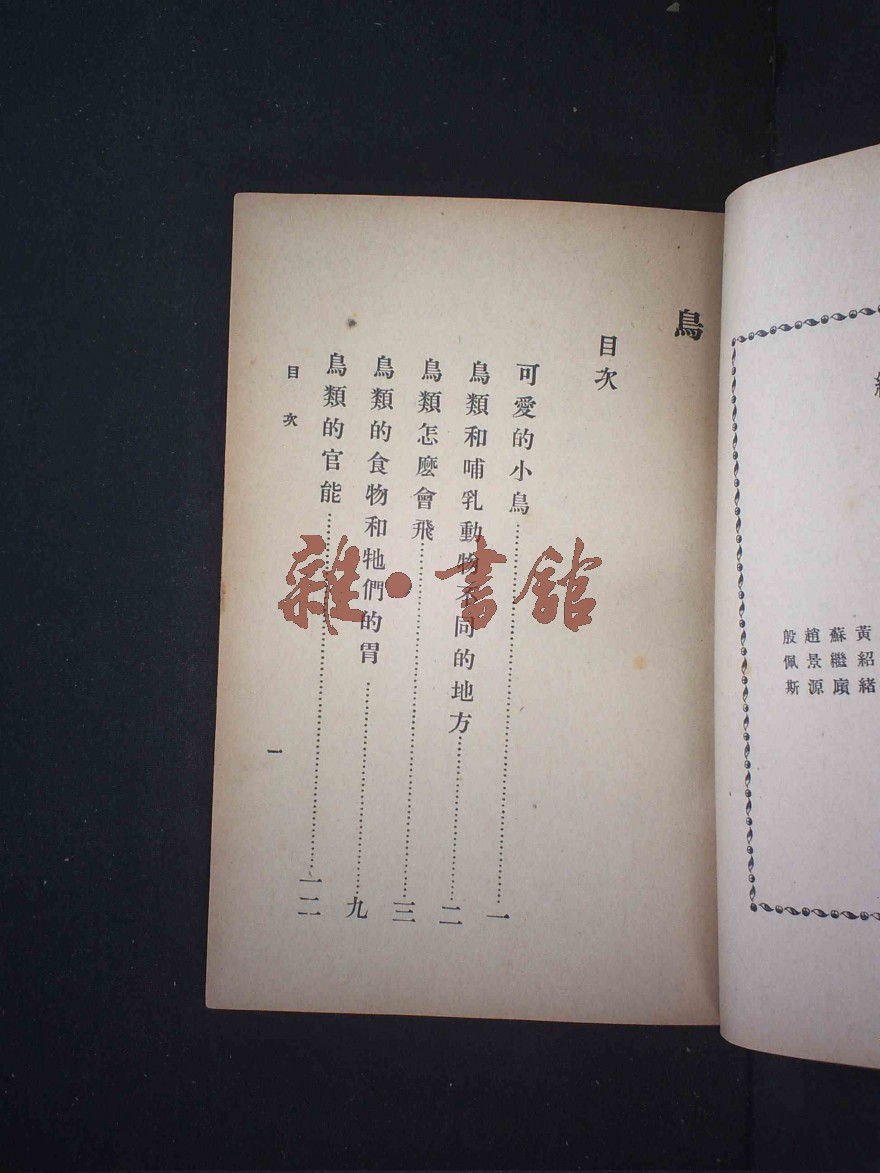 黃紹緒
蘇繼廎
趙景源
殷佩斯
鳥
目次
可愛的小鳥……一
鳥類和哺乳動物不同的地方……二
鳥類怎麽會飛……三
鳥類的食物和牠們的胃……九
鳥類的官能……一二
目次
一
雜·書館